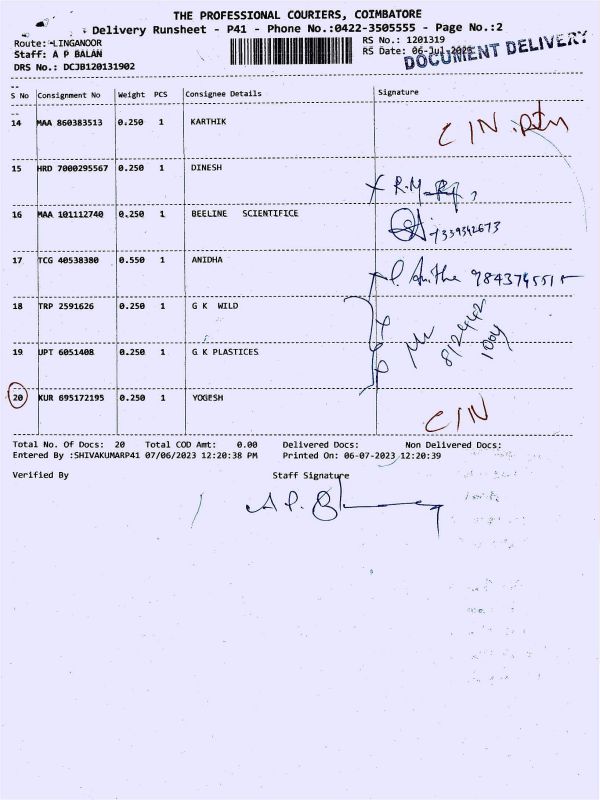 THE PROFESSIONAL COURIERS, COIMBATORE
Delivery Runsheet - P41 - Phone No.:0422-3505555 - Page No.:2
Route: LINGANOOR RS No.: 1201319
Staff: A P BALAN RS Date: 06-Jul-2023
DOCUMENT DELIVERY
DRS No.: DCJB120131902
S No Consignment No Weight PCS Consignee Details Signature
14 MAA 860383513 0.250 1 KARTHIK
C/N
15 HRD 7000295567 0.250 1 DINESH
16 MAA 101112740 0.250 1 BEELINE SCIENTIFICE
17 TCG 40538380 0.550 1 ANIDHA
P. Anitha
18 TRP 2591626 0.250 1 G K WILD
19 UPT 6051408 0.250 1 G K PLASTICES
20 KUR 695172195 0.250 1 YOGESH
C/N
Total No. Of Docs: 20 Total COD Amt: 0.00 Delivered Docs: Non Delivered Docs:
Entered By :SHIVAKUMARP41 07/06/2023 12:20:38 PM Printed On: 06-07-2023 12:20:39
Verified By Staff Signature